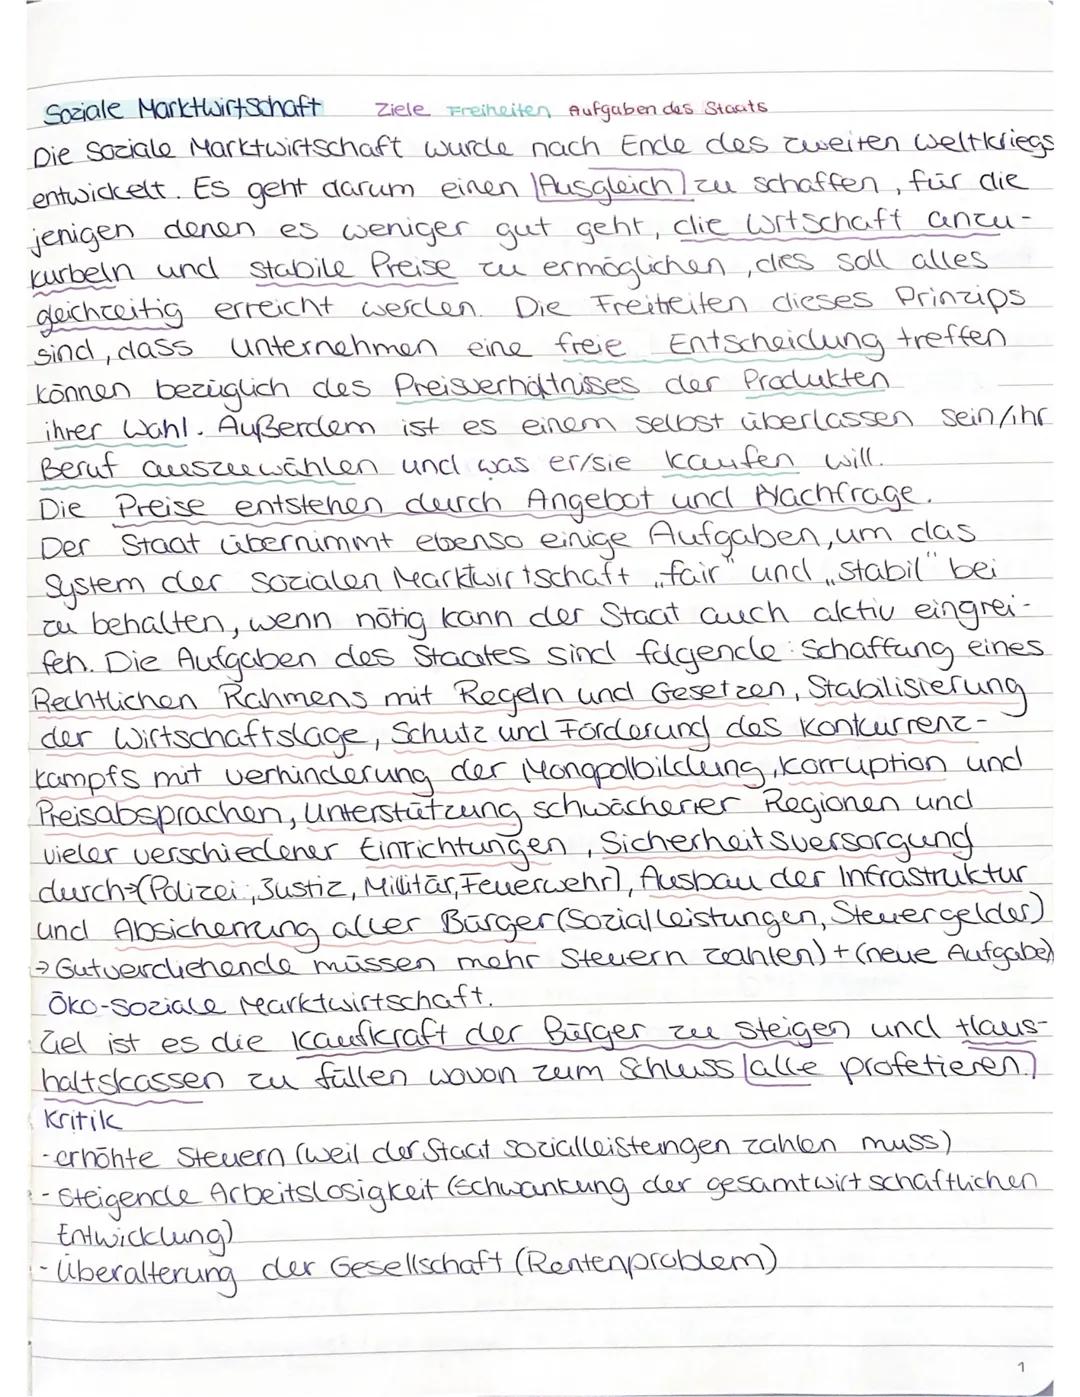 Soziale Marktwirtschaft Ziele Freiheiten Aufgaben des Staats
Die Soziale Marktwirtschaft wurde nach Ende des zweiten Weltkriegs
entwickelt. Es geht darum einen Ausgleich zu schaffen, für die
jenigen denen es weniger gut geht, die Wrtschaft anzu-
kurbeln und stabile Preise zu ermöglichen, dies soll alles
gleichzeitig erreicht werden. Die Freiheiten dieses Prinzips
sind, dass Unternehmen eine freie Entscheidung treffen
können bezüglich des Preisverhältnisses der Produkten
ihrer Wahl. Außerdem ist es einem selbst überlassen sein/ihr
Beruf auszuwählen und was er/sie kaufen will.
Die Preise entstehen durch Angebot und Nachfrage.
Der Staat übernimmt ebenso einige Aufgaben, um das
System der Sozialen Marktwirtschaft „fair" und „stabil" bei
zu behalten, wenn nötig kann der Staat auch aktiv eingrei-
fen. Die Aufgaben des Staates sind folgende: Schaffung eines
Rechtlichen Rahmens mit Regeln und Gesetzen, Stabilisierung
der Wirtschaftslage, Schutz und Förderung des Konkurrenz-
kampfs mit verhinderung der Monopolbildung, Korruption und
Preisabsprachen, Unterstützung schwächerer Regionen und
vieler verschiedener Einrichtungen, Sicherheitsversorgung
durch→(Polizei, Justiz, Militär, Feuerwehr), Ausbau der Infrastruktur
und Absicherrung aller Bürger (Sozialleistungen, Steuergelder)
→ Gutverdienende müssen mehr Steuern zahlen) + (neue Aufgabe)
Öko-Soziale Marktwirtschaft.
Ziel ist es die Kaufkraft der Bürger zu steigen und Haus-
haltskassen zu füllen wovon zum Schluss alle profetieren.
Kritik
- erhöhte Steuern (weil der Staat sozialleistungen zahlen muss)
- Steigende Arbeitslosigkeit (Schwankung der gesamtwirtschaftlichen
Entwicklung)
- Überalterung der Gesellschaft (Rentenproblem)
1